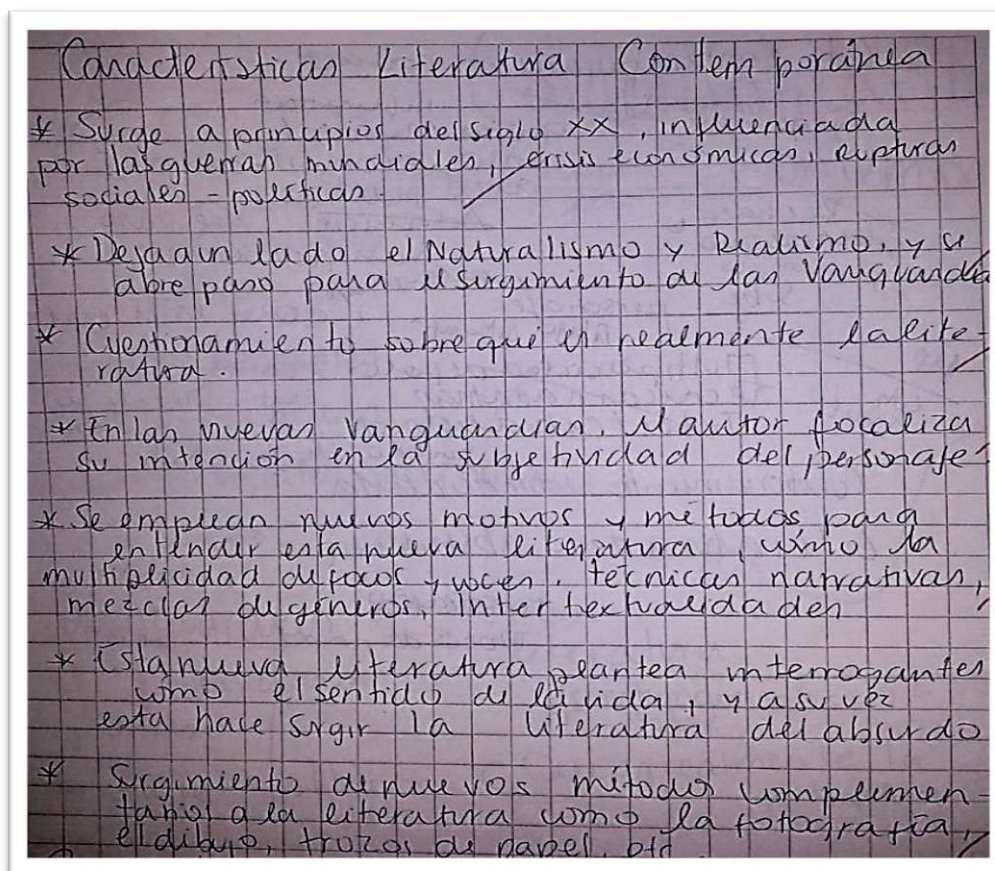 Características Literatura Contemporánea
* Surge a principios del siglo XX, influenciada
por las guerras mundiales, crisis económicas, rupturas
sociales - políticas.
* Deja a un lado el Naturalismo y Realismo, y se
abre paso para el surgimiento de las Vanguardia
* Cuestionamiento sobre qué es realmente la lite-
ratura.
* En las nuevas Vanguardias, el autor focaliza
su intención en la subjetividad del personaje
* Se emplean nuevos motivos y métodos para
entender esta nueva literatura, como la
multiplicidad de focos y voces, técnicas narrativas,
mezclas de géneros, intertextualidades
* Esta nueva literatura plantea interrogantes
como el sentido de la vida, y a su vez
esta hace surgir la literatura del absurdo
* Surgimiento de nuevos métodos complemen-
tarios a la literatura como la fotografía,
el dibujo, trozos de papel,